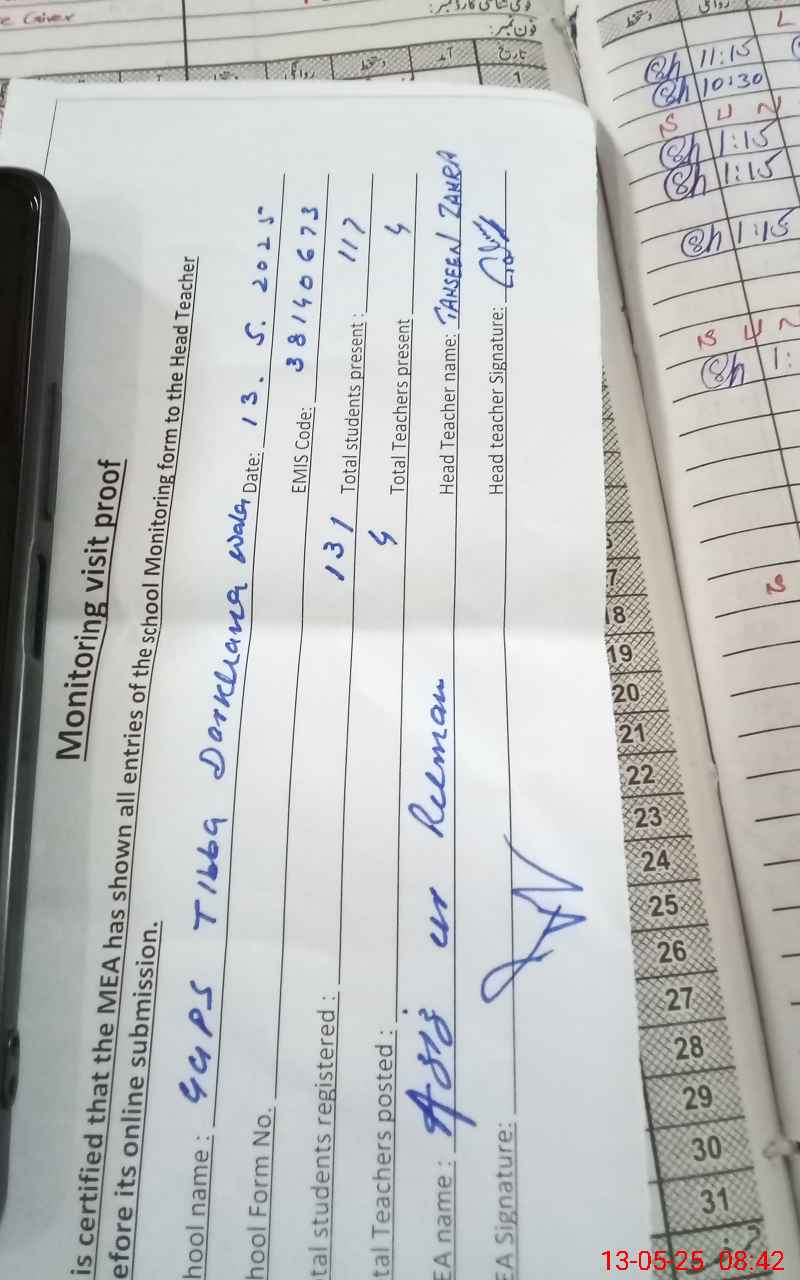 Monitoring visit proof
is certified that the MEA has shown all entries of the school Monitoring form to the Head Teacher
efore its online submission.
hool name : GGPS Tibba Darkhana wala Date: 13. 5. 2025
hool Form No. EMIS Code: 38140673
tal students registered : 131 Total students present : 117
tal Teachers posted : 4 Total Teachers present 4
EA name : Aziz ur Rehman Head Teacher name: TAHSEEN ZAHRA
EA Signature: Head teacher Signature:
e Giver
فون نمبر:
تاریخ آمد دستخط روانگی دستخط
1
18
19
20
21
22
23
24
25
26
27
28
29
30
31
دستخط روانگی
11:15
10:30
S U N
1:15
1:15
1:15
S U N
1:
S
13-05-25 08:42